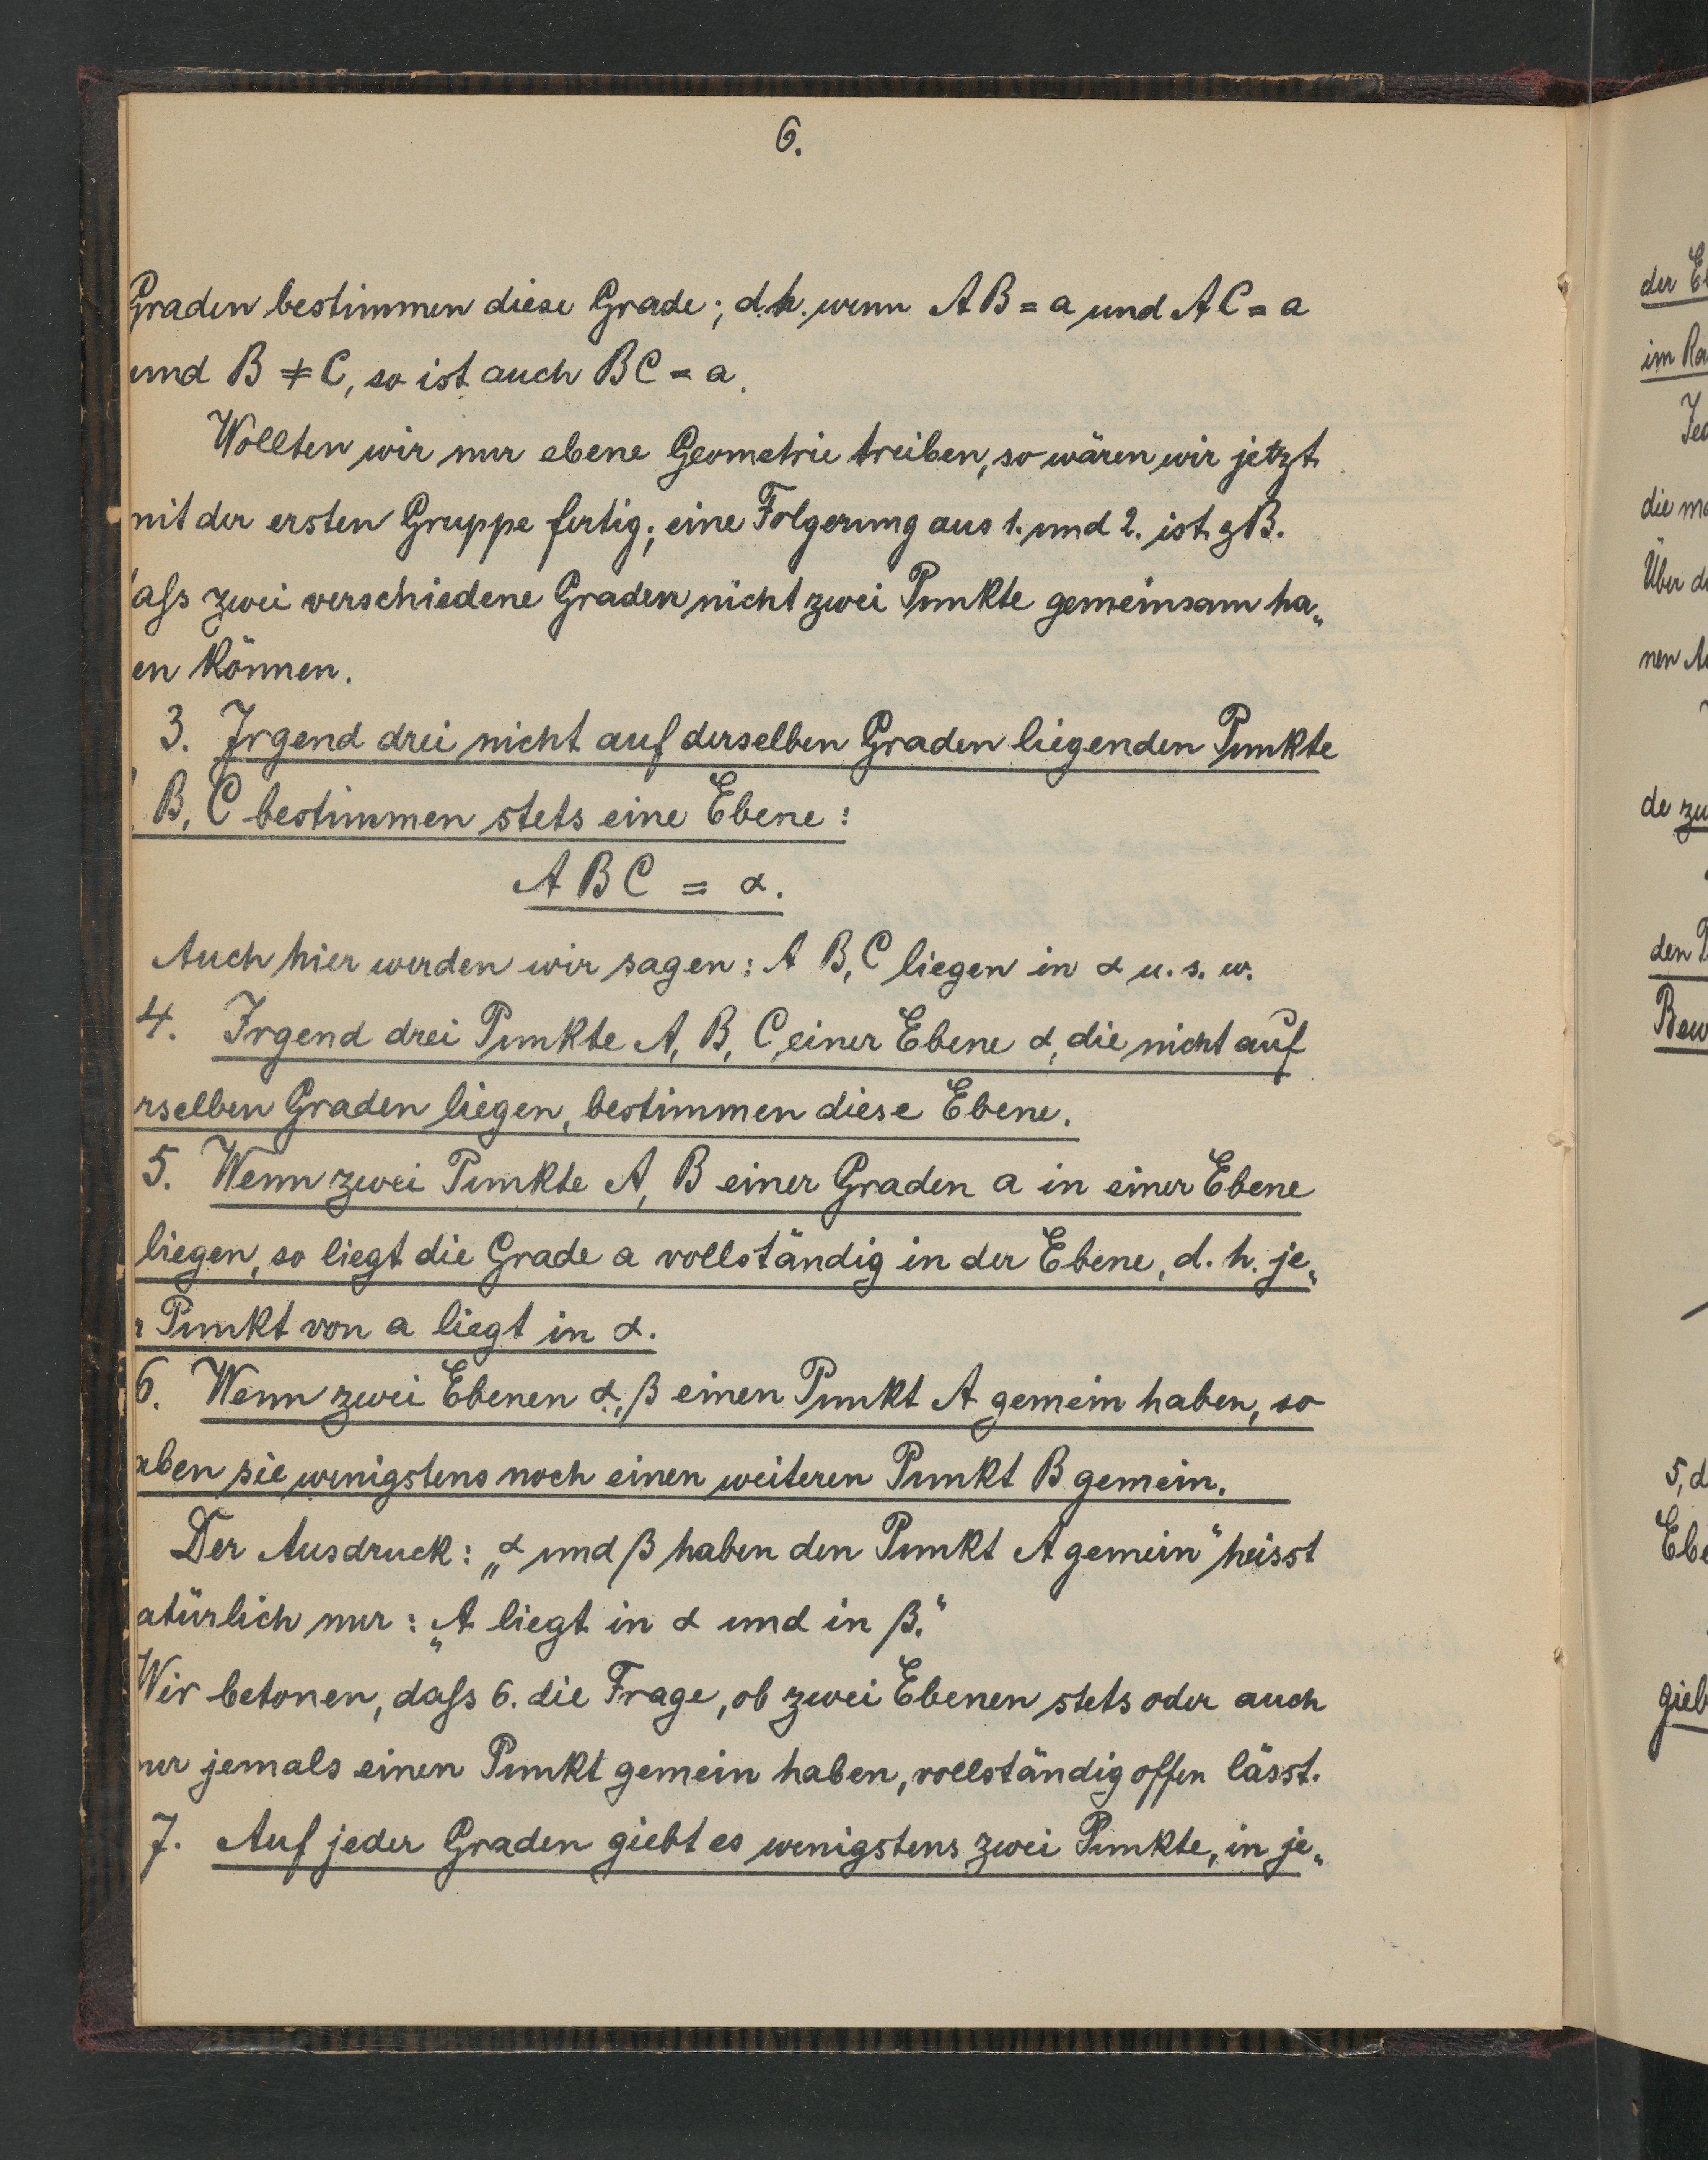 6.
Graden bestimmen diese Grade; d.h. wenn AB = a und AC = a
und B ≠ C, so ist auch BC = a.
Wollten wir nur ebene Geometrie treiben, so wären wir jetzt
mit der ersten Gruppe fertig; eine Folgerung aus 1. und 2. ist zB.
aſs zwei verschiedene Graden nicht zwei Punkte gemeinsam ha„
en können.
3. Irgend drei nicht auf derselben Graden liegenden Punkte
B, C bestimmen stets eine Ebene:
ABC = α.
Auch hier werden wir sagen: A B, C liegen in α u. s. w.
4. Irgend drei Punkte A, B, C einer Ebene α, die nicht auf
rselben Graden liegen, bestimmen diese Ebene.
5. Wenn zwei Punkte A, B einer Graden a in einer Ebene
liegen, so liegt die Grade a vollständig in der Ebene, d. h. je„
r Punkt von a liegt in α.
6. Wenn zwei Ebenen α, β einen Punkt A gemein haben, so
aben sie wenigstens noch einen weiteren Punkt B gemein.
Der Ausdruck: „α und β haben den Punkt A gemein“ heisst
atürlich nur: „A liegt in α und in β.“
Wir betonen, daſs 6. die Frage, ob zwei Ebenen stets oder auch
nur jemals einen Punkt gemein haben, vollständig offen lässt.
7. Auf jeder Graden giebt es wenigstens zwei Punkte, in je„
der E
im Ra
Jed
die m
Über d
nen A
de zu
den P
Bew
5, d
Ebe
gieb